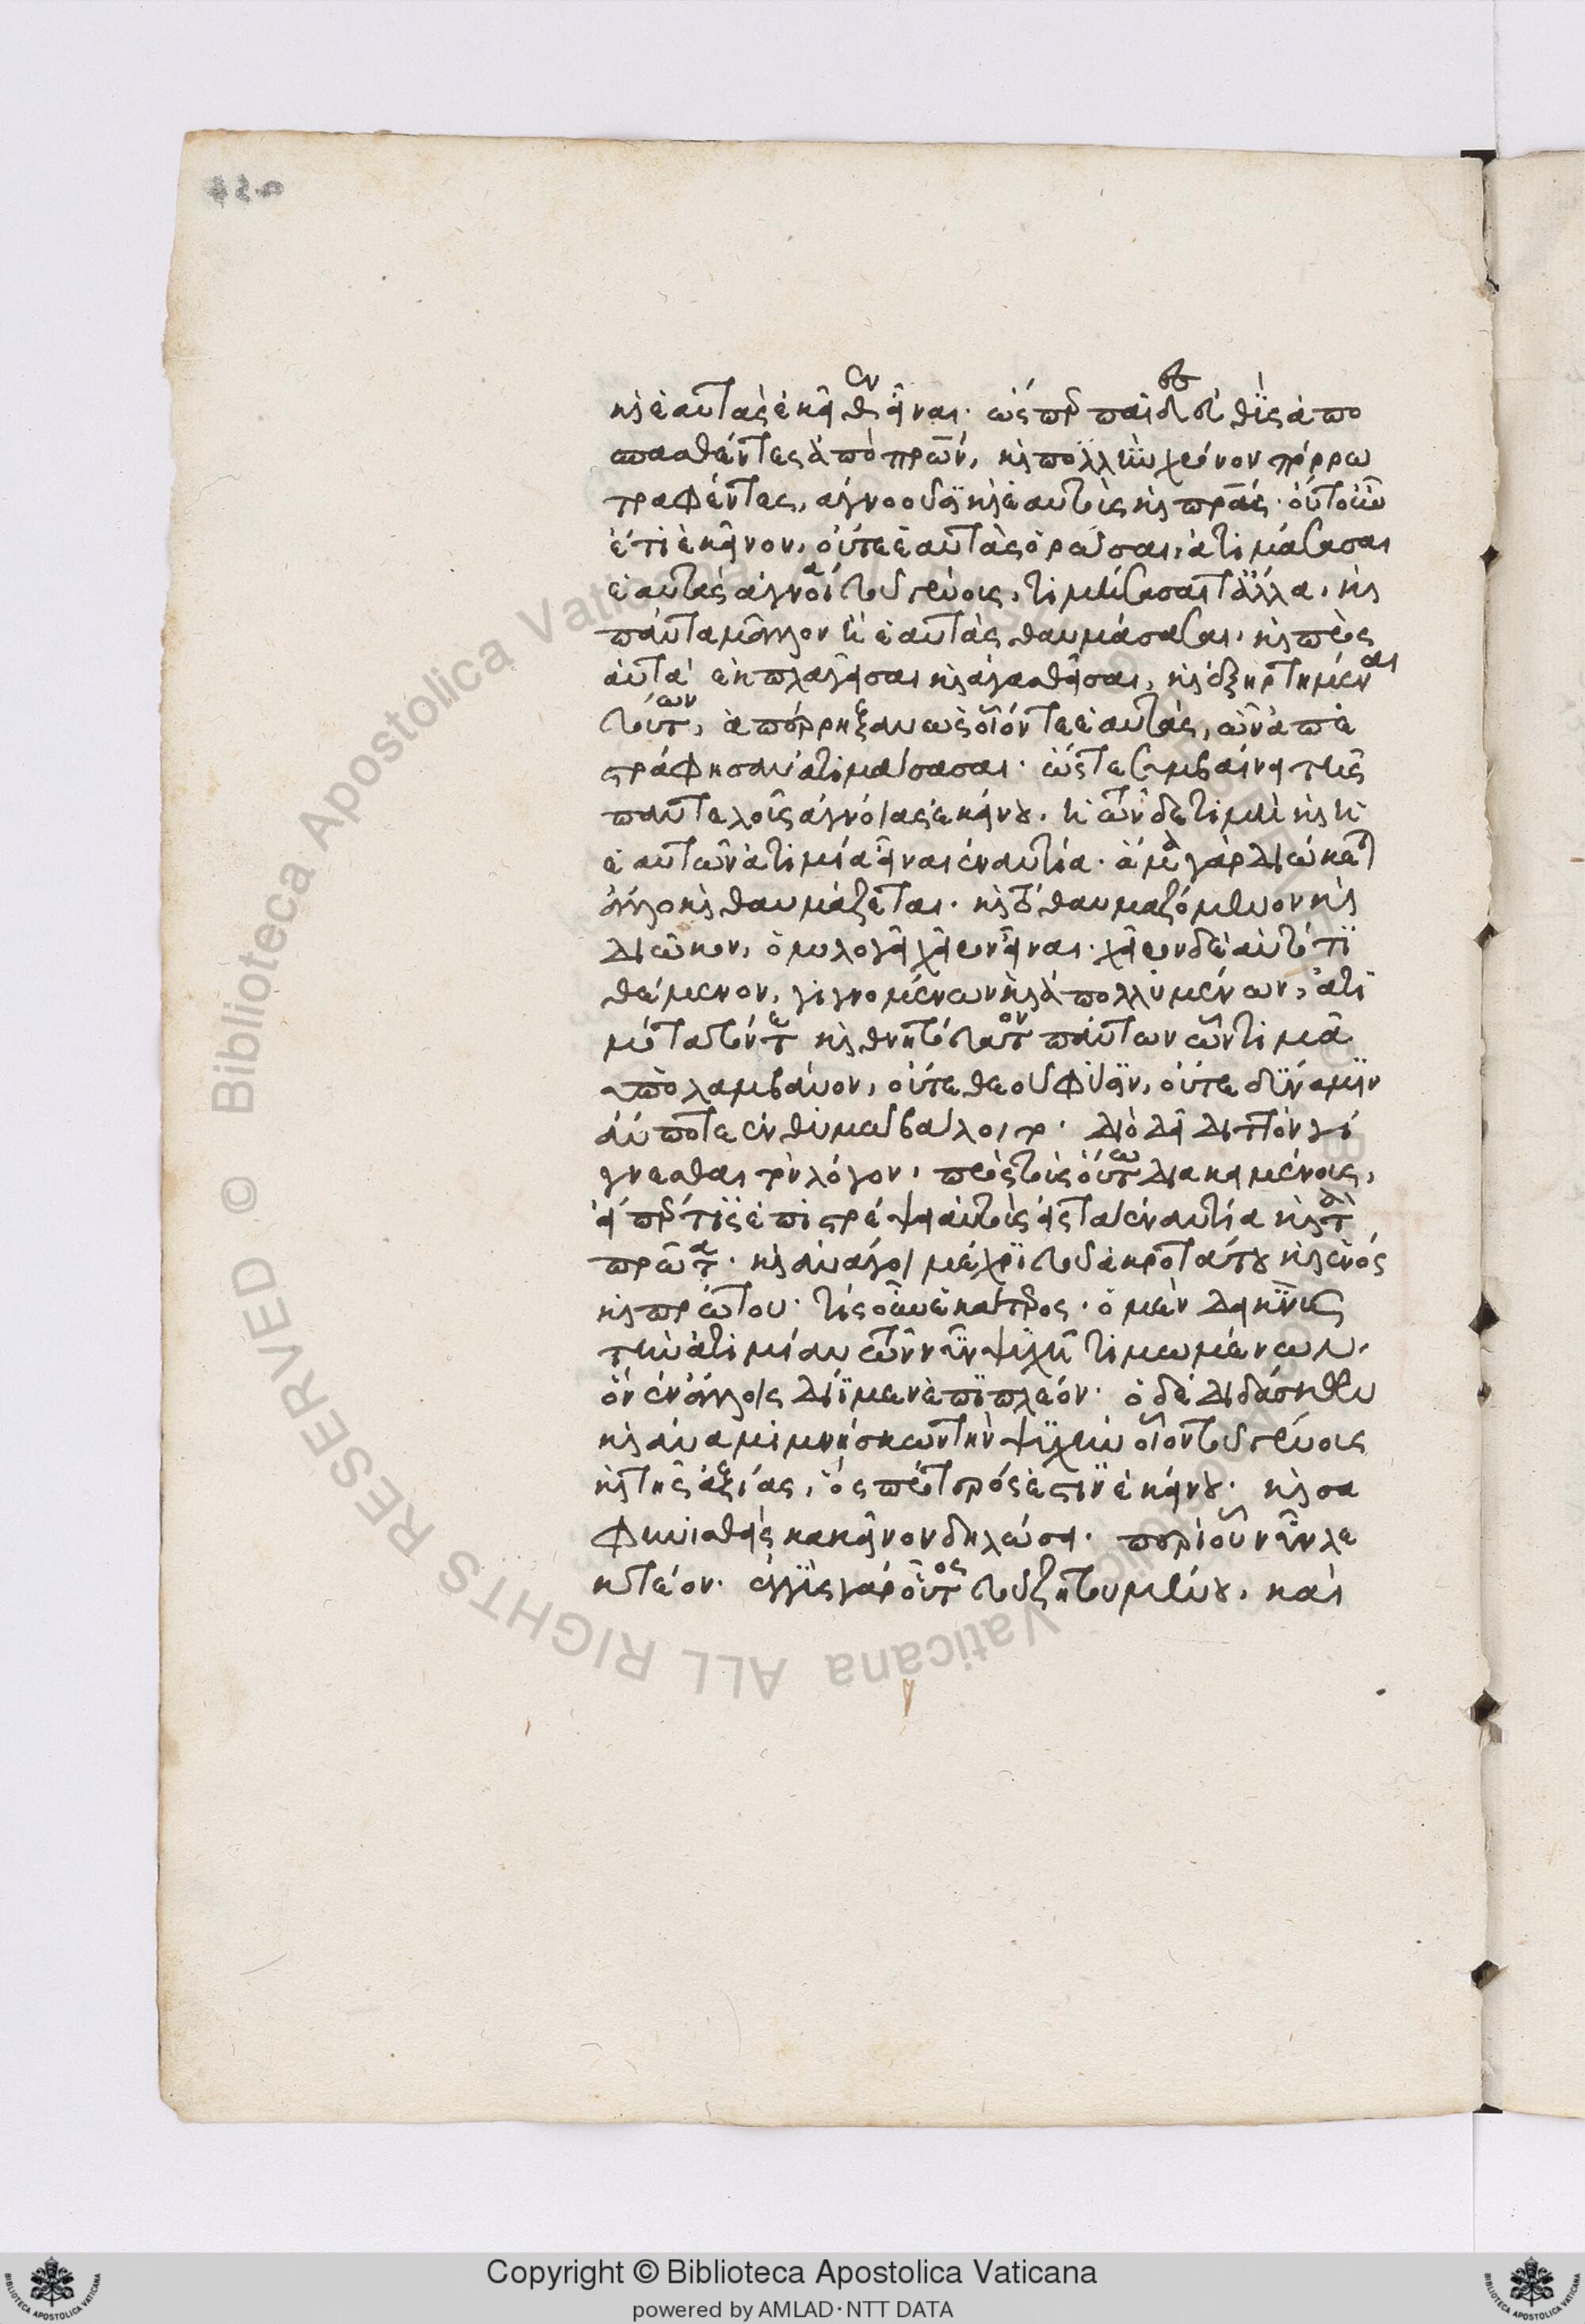 καὶ ἑαυτὰς ἐκεῖθεν εἶναι. ὥσπερ παῖδες εὐθὺς ἀπο
σπασθέντες ἀπὸ πρων, καὶ πολλὺν χρόνον πόρρω
τραφέντες, ἀγνοοῦσι καὶ ἑαυτοὺς καὶ πρας. οὔτ' οὖν
ἔτι ἐκεῖνον, οὔτε ἑαυτὰς ὁρῶσαι, ἀτιμάσασαι
ἑαυτὰς ἀγνοίᾳ τοῦ γένους, τιμήσασαι τἄλλα, καὶ
πάντα μᾶλλον ἢ ἑαυτὰς θαυμάσασαι, καὶ πρὸς
αὐτὰ ἐκπλαγεῖσαι καὶ ἀγασθεῖσαι, καὶ ἐξηρτημέναι
τούτων, ἀπέρρηξαν ὡς οἷόν τε ἑαυτὰς, ὧν ἀπε
στράφησαν ἀτιμάσασαι. ὥστε συμβαίνει τῆς
παντελοῦς ἀγνοίας ἐκείνου, ἡ τῶνδε τιμὴ καὶ ἡ
ἑαυτῶν ἀτιμία εἶναι ἐναντία. ἅμα γὰρ διώκεται
ἄλλο καὶ θαυμάζεται. καὶ τὸ θαυμαζόμενον καὶ
διῶκον, ὁμολογεῖ χεῖρον εἶναι. χεῖρον δὲ αὐτὸ τι
θέμενον, γιγνομένων καὶ ἀπολλυμένων, ἀτι
μότατόν τε καὶ θνητότατον πάντων ὧν τιμᾷ
ὑπολαμβάνον, οὔτε θεοῦ φύσιν, οὔτε δύναμιν
ἄν ποτε ἐν θυμῷ βάλοιτο. διὸ δεῖ διττὸν γί
γνεσθαι τὸν λόγον, πρὸς τοὺς οὕτω διακειμένους,
εἴπερ τις ἐπιστρέψει αὐτοὺς εἰς τὰ ἐναντία καὶ τὰ
πρῶτα. καὶ ἀνάγοι μέχρι τοῦ ἀκροτάτου καὶ ἑνός
καὶ πρώτου. τίς οὖν ἑκάτερος. ὁ μὲν δεικνὺς
τὴν ἀτιμίαν τῶν νῦν ψυχῇ τιμωμένων.
ὃν ἐν ἄλλοις δίϊμεν ἐπιπλέον. ὁ δὲ διδάσκων
καὶ ἀναμιμνήσκων τὴν ψυχὴν οἷον τοῦ γένους
καὶ τῆς ἀξίας, ὃς πρότερός ἐστιν ἐκείνου. καὶ σα
φηνισθεὶς κἀκεῖνον δηλώσει. περὶ οὗ νῦν λε
κτέον. ἐγγὺς γὰρ οὗτος τοῦ ζητουμένου, καὶ